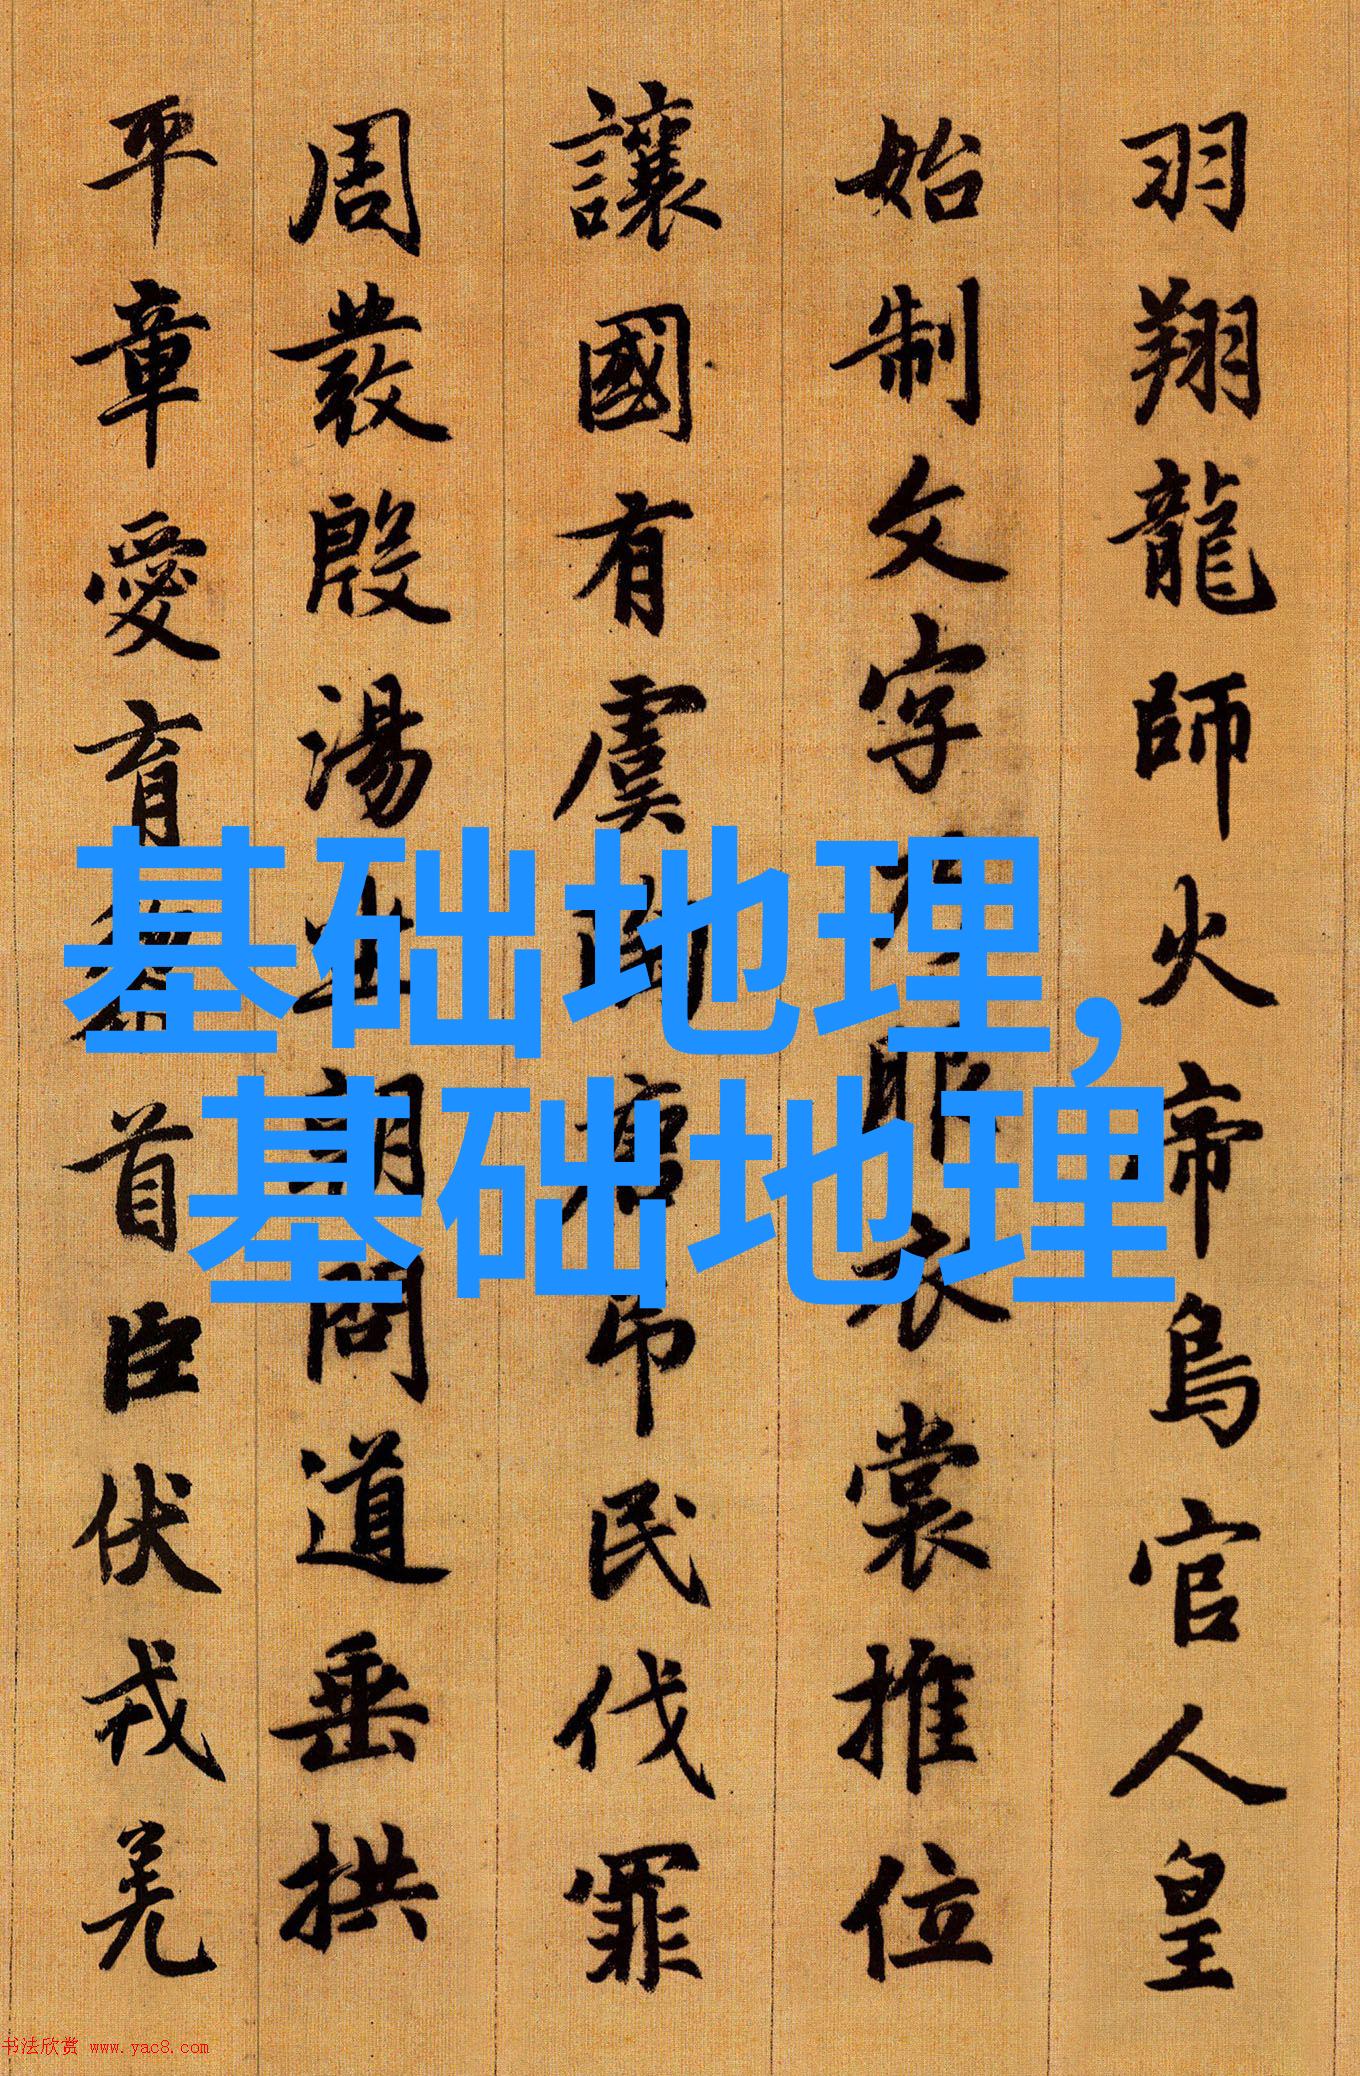 羽翔龍師火帝鳥官人皇
始制文字乃服衣裳推位
讓國有虞陶唐吊民伐罪
周發殷湯坐朝問道垂拱
平章愛育黎首臣伏戎羌
基础地理,
基础地理
书法欣赏 www.yac8.com